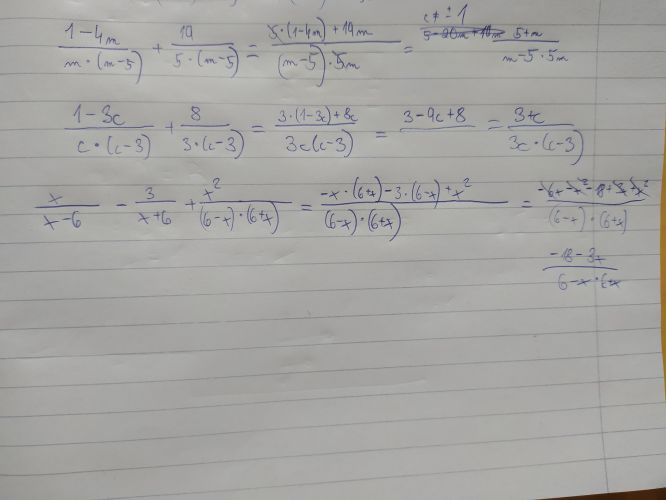 c ≠ ± 1
(1-4m)/(m·(m-5)) + 19/(5·(m-5)) = (5·(1-4m)+19m)/((m-5)·5m) = (5-20m+19m)/ (5+m)/(m-5·5m)
(1-3c)/(c·(c-3)) + 8/(3·(c-3)) = (3·(1-3c)+8c)/(3c(c-3)) = 3-9c+8 = (3+c)/(3c·(c-3))
x/(x-6) - 3/(x+6) + x²/((6-x)·(6+x)) = (-x·(6+x)-3·(6-x)+x²)/((6-x)·(6+x)) = (-6x-x²-18+3+x²)/((6-x)·(6+x))
(-18-3x)/(6-x·6+x)